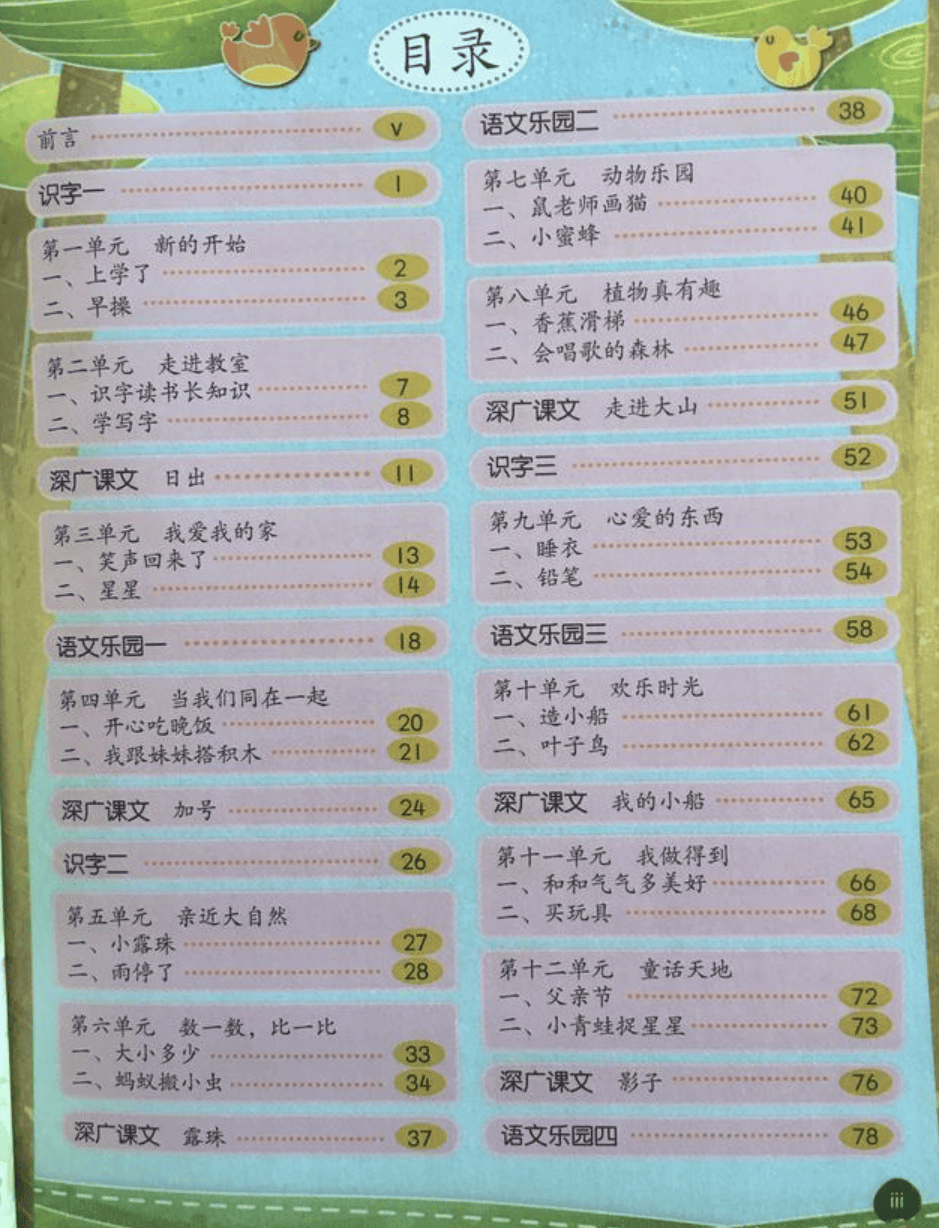 目录
前言 v
识字一 1
第一单元 新的开始
一、上学了 2
二、早操 3
第二单元 走进教室
一、识字读书长知识 7
二、学写字 8
深广课文 日出 11
第三单元 我爱我的家
一、笑声回来了 13
二、星星 14
语文乐园一 18
第四单元 当我们同在一起
一、开心吃晚饭 20
二、我跟妹妹搭积木 21
深广课文 加号 24
识字二 26
第五单元 亲近大自然
一、小露珠 27
二、雨停了 28
第六单元 数一数，比一比
一、大小多少 33
二、蚂蚁搬小虫 34
深广课文 露珠 37
语文乐园二 38
第七单元 动物乐园
一、鼠老师画猫 40
二、小蜜蜂 41
第八单元 植物真有趣
一、香蕉滑梯 46
二、会唱歌的森林 47
深广课文 走进大山 51
识字三 52
第九单元 心爱的东西
一、睡衣 53
二、铅笔 54
语文乐园三 58
第十单元 欢乐时光
一、造小船 61
二、叶子鸟 62
深广课文 我的小船 65
第十一单元 我做得到
一、和和气气多美好 66
二、买玩具 68
第十二单元 童话天地
一、父亲节 72
二、小青蛙捉星星 73
深广课文 影子 76
语文乐园四 78
iii